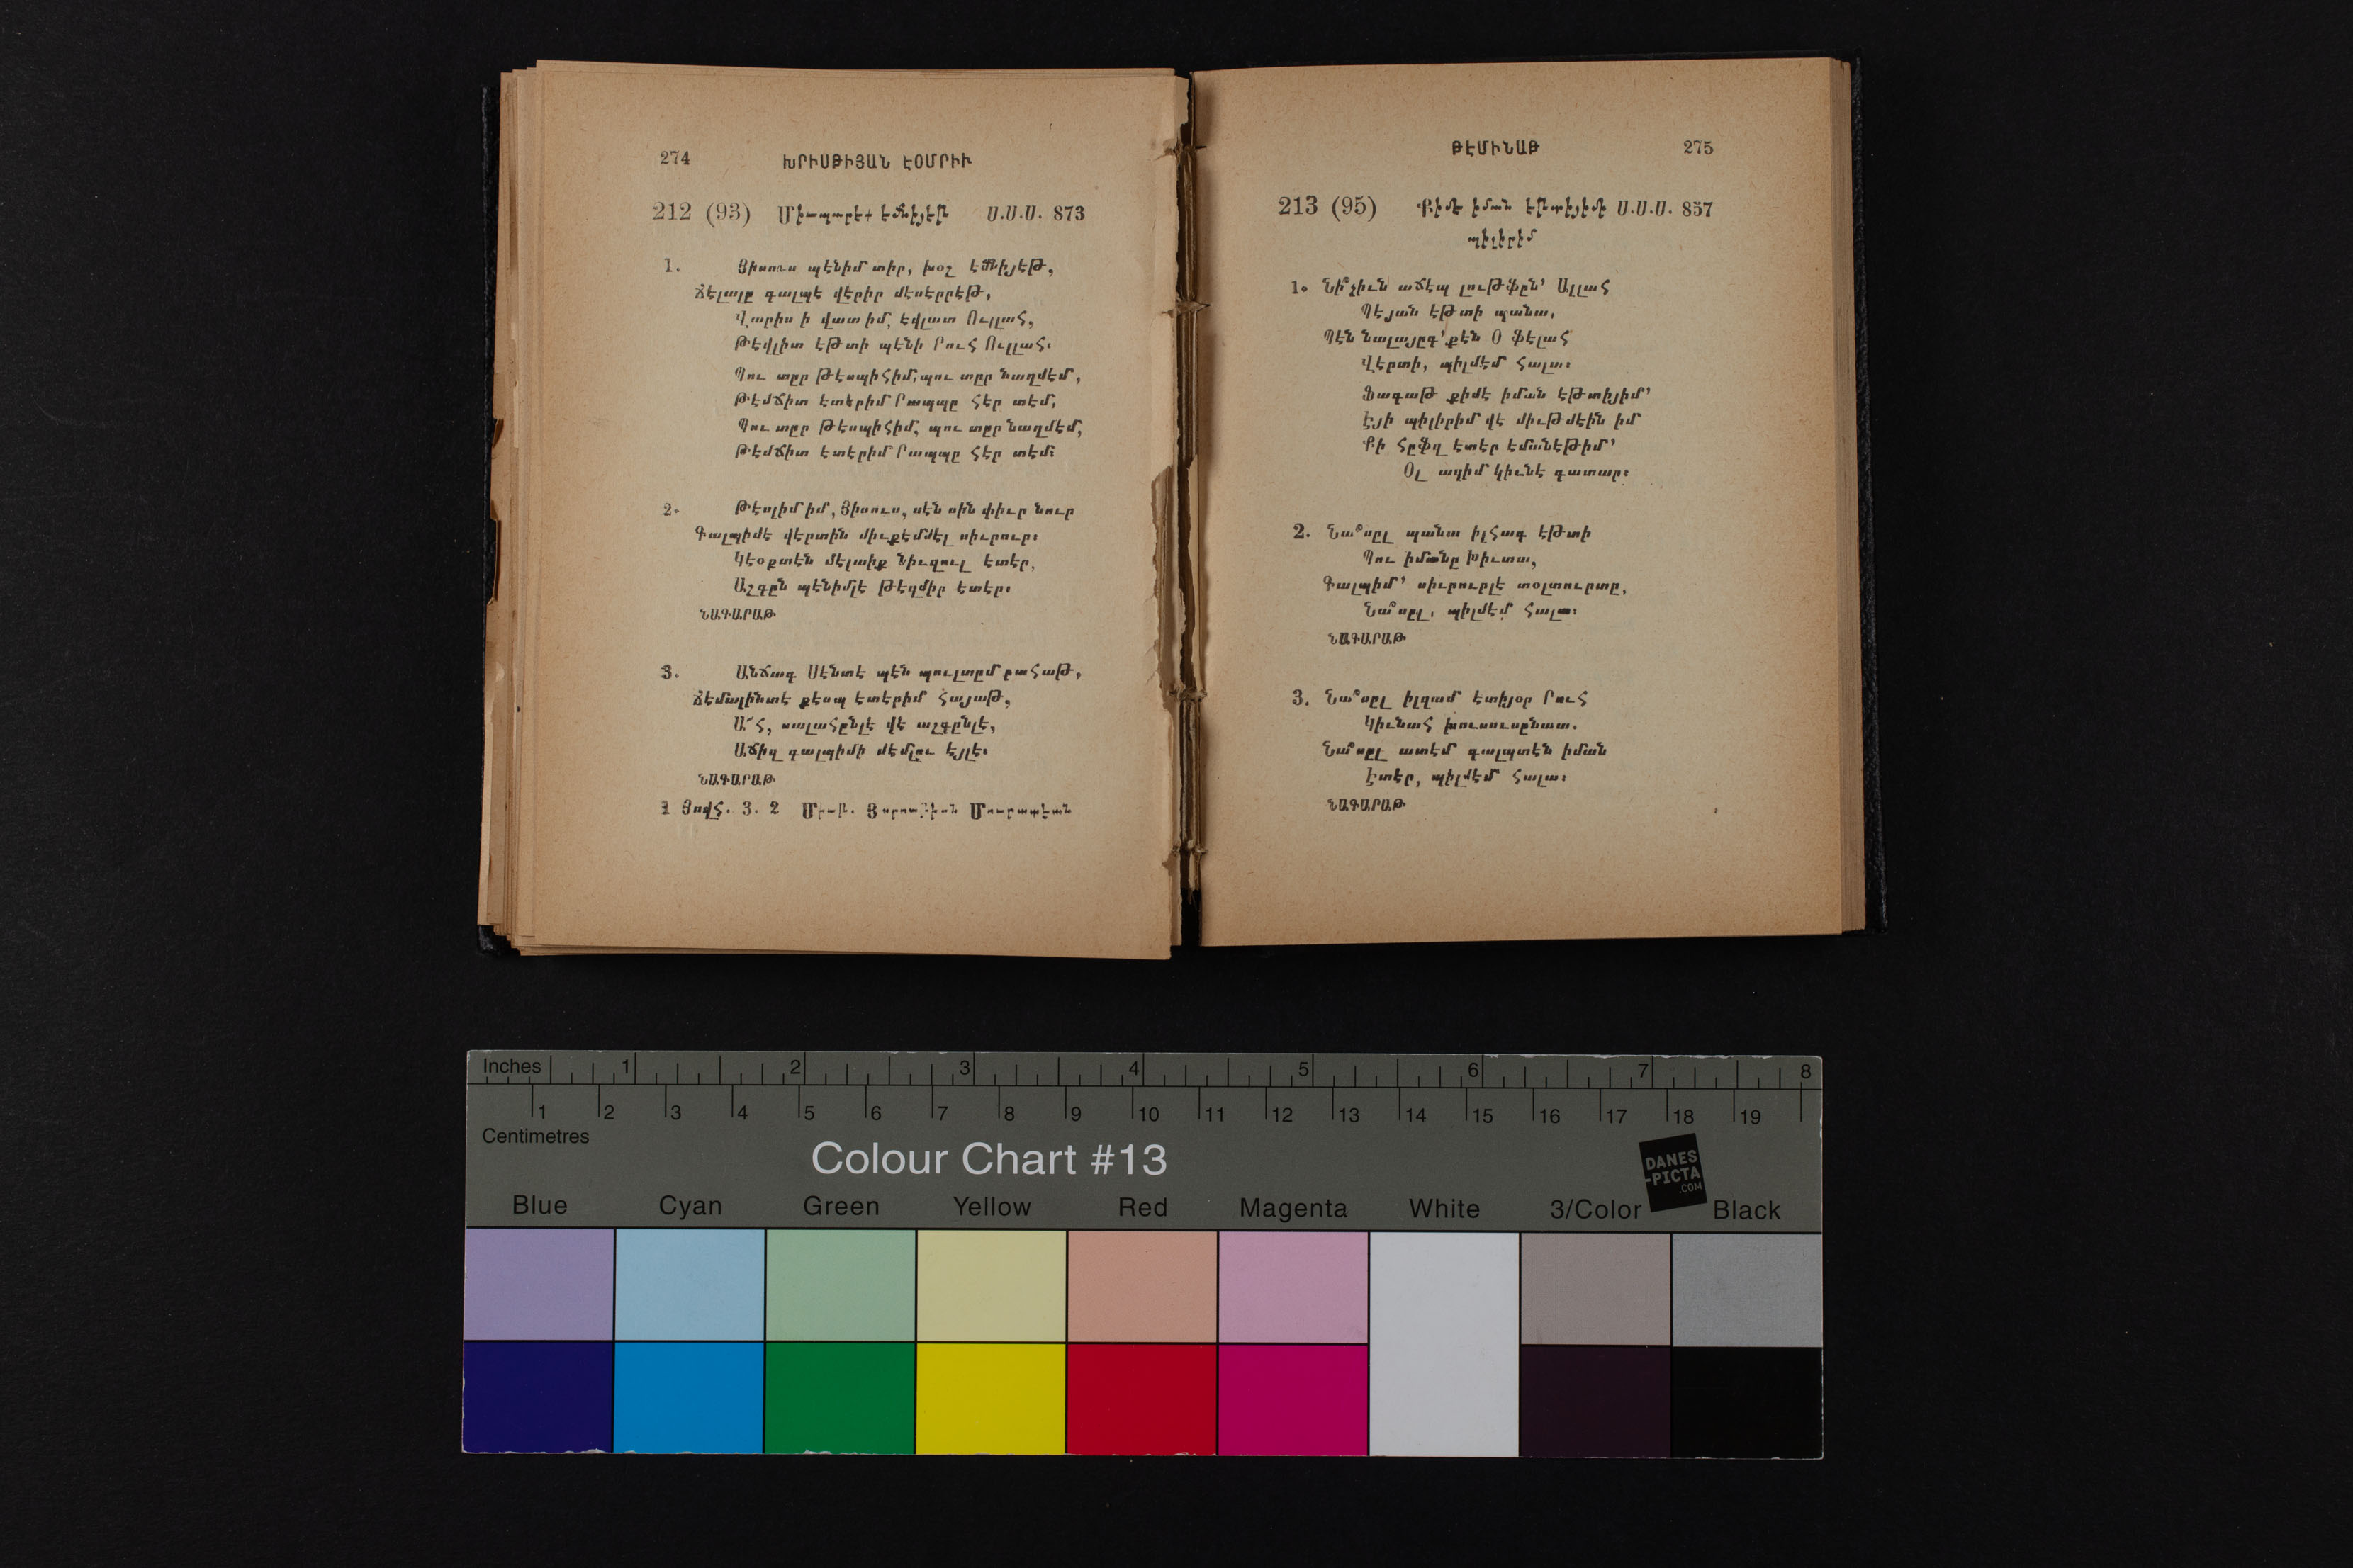 274 ԽՐԻՍԹԻՅԱՆ ԷՕՄՐԻՒ
212 (93) Միւպարէք էմնիյէթ Ս.Ս.Ս. 873
1. Յիսուս պէնիմ տիր, խօշ էմնիյէթ,
Ճէլալը գալպէ վէրիր մէսէրրէթ,
Վարիս ի վատ իմ, էվլատ Ուլլահ,
Թէվլիտ էթտի պէնի Րուհ Ուլլահ։
Պու տըր թէսպիհիմ, պու տըր նաղմէմ,
Թէմճիտ էտէրիմ Րապպը հէր տէմ,
Պու տըր թէսպիհիմ, պու տըր նաղմէմ,
Թէմճիտ էտէրիմ Րապպը հէր տէմ։
2. Թէսլիմ իմ, Յիսուս, սէն սին փիւր նուր
Գալպիմէ վէրտին միւքէմմէլ սիւրուր։
Կէօքտէն մէլաիք նիւզուլ էտէր,
Աշգըն պէնիմլէ թէղմիր էտէր։
ՆԱԳԱՐԱԹ
3. Անճագ Սէնտէ պէն պուլտըմ րահաթ,
Ճէմալինտէ քէսպ էտէրիմ հայաթ,
Ա՜հ, սալահընլէ վէ աշգընլէ,
Աճիզ գալպիմի մէմլու էյլէ։
ՆԱԳԱՐԱԹ
1 Յովհ. 3. 2
ԹԷՄԻՆԱԹ 275
213 (95) Քիմէ իման էթտիյիմի Ս.Ս.Ս. 857
պիլիրիմ
1. Նի՞չիւն աճէպ լութֆըն՚ Ալլահ
Պէյան էթտի պանա,
Պէն նալայըգ՚քէն Օ ֆէլահ
Վէրտի, պիլմէմ հալա։
Ֆագաթ քիմէ իման էթտիյիմ՚
Էյի պիլիրիմ վէ միւթմէին իմ
Քի հըֆզ էտէր էմանէթիմ՚
Օլ ազիմ կիւնէ գատար։
2. Նա՞սըլ պանա իլհագ էթտի
Պու իմանը Խիւտա,
Գալպիմ՚ սիւրուրլէ տօլտուրտը,
Նա՞սըլ, պիլմէմ հալա։
ՆԱԳԱՐԱԹ
3. Նա՞սըլ իլզամ էտիյօր Րուհ
Կիւնահ խուսուսընտա.
Նա՞սըլ ատէմ գալպտէն իման
Էտէր, պիլմէմ հալա։
ՆԱԳԱՐԱԹ
Inches 1 2 3 4 5 6 7 8
1 2 3 4 5 6 7 8 9 10 11 12 13 14 15 16 17 18 19
Centimetres
Colour Chart #13
DANES
-PICTA
.COM
Blue Cyan Green Yellow Red Magenta White 3/Color Black